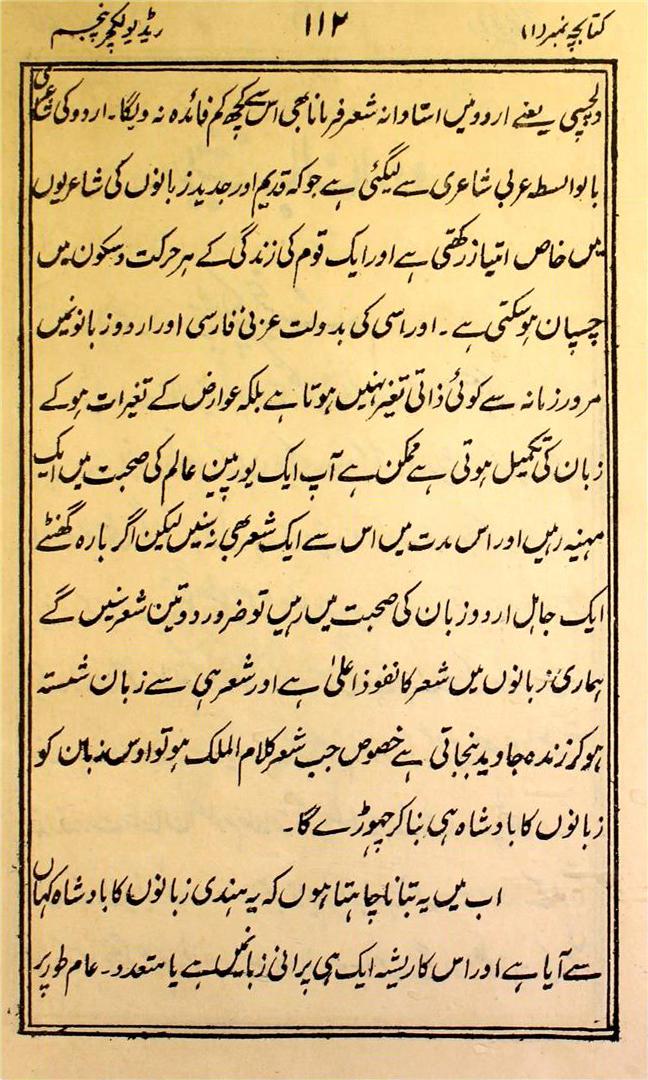 کتابچہ نمبر (۱) ۱۱۲ ریڈیو لکچر پنجم
دلچسپی یعنے اردو میں استادانہ شعر فرمانا بھی اس سے کچھ کم فائدہ نہ دیگا۔ اردو کی شاعری
بالواسطہ عربی شاعری سے لیگئی ہے جو کہ قدیم اور جدید زبانوں کی شاعریوں
میں خاص امتیاز رکھتی ہے اور ایک قوم کی زندگی کے ہر حرکت و سکون میں
چسپان ہو سکتی ہے۔ اور اسی کی بدولت عربی فارسی اور اردو زبانونمیں
مرور زمانہ سے کوئی ذاتی تغیر نہیں ہوتا ہے بلکہ عوارض کے تغیرات ہو کے
زبان کی تکمیل ہوتی ہے ممکن ہے آپ ایک یورپین عالم کی صحبت میں ایک
مہنیہ رہیں اور اس مدت میں اس سے ایک شعر بھی نہ سنیں لیکن اگر بارہ گھنٹے
ایک جاہل اردو زبان کی صحبت میں رہیں تو ضرور دو تین شعر سنیں گے
ہماری زبانوں میں شعر کا نفوذ اعلیٰ ہے اور شعر ہی سے زبان شستہ
ہو کر زندہ جاوید بنجاتی ہے خصوص جب شعر کلام الملک ہو تو اوس زبان کو
زبانوں کا بادشاہ ہی بنا کر چھوڑے گا۔
اب میں یہ بتانا چاہتا ہوں کہ یہ ہندی زبانوں کا بادشاہ کہاں
سے آیا ہے اور اس کا ریشہ ایک ہی پرانی زبانمیں ہے یا متعدد۔ عام طور پر